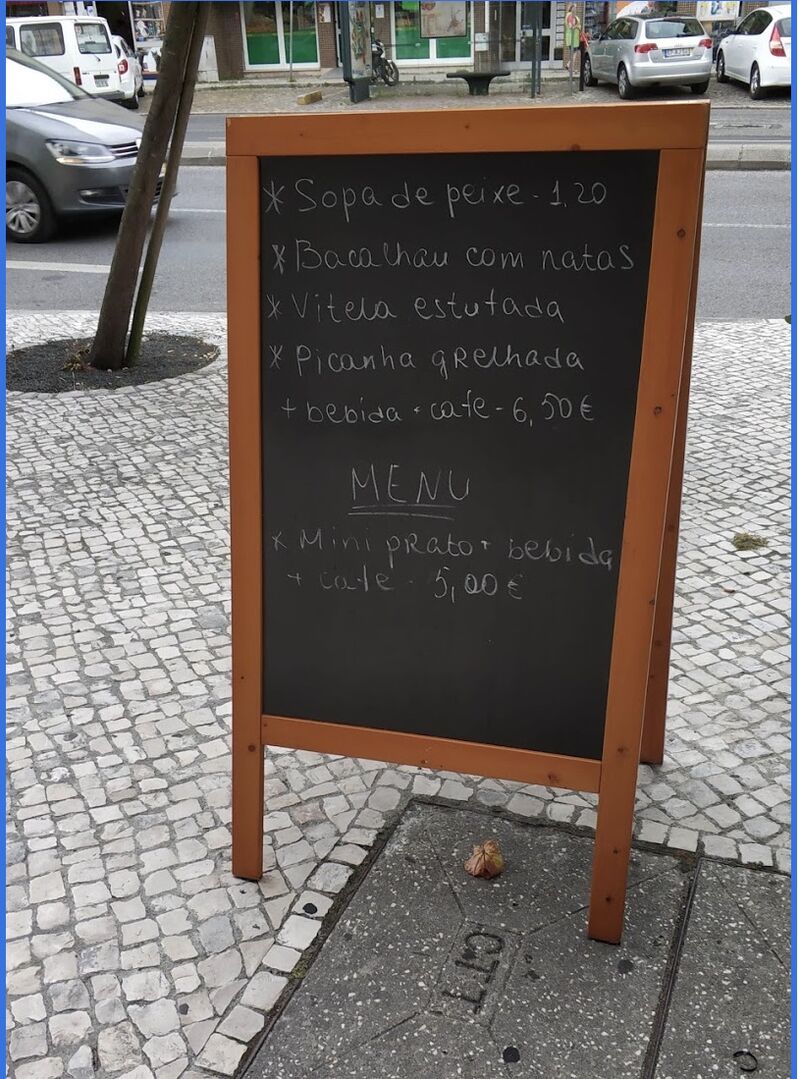 * Sopa de peixe - 1,20
* Bacalhau com natas
* Vitela estufada
* Picanha gRelhada
+ bebida + cafe - 6,50€
MENU
* Mini pRato + bebida
+ cafe - 5,00€
CTT